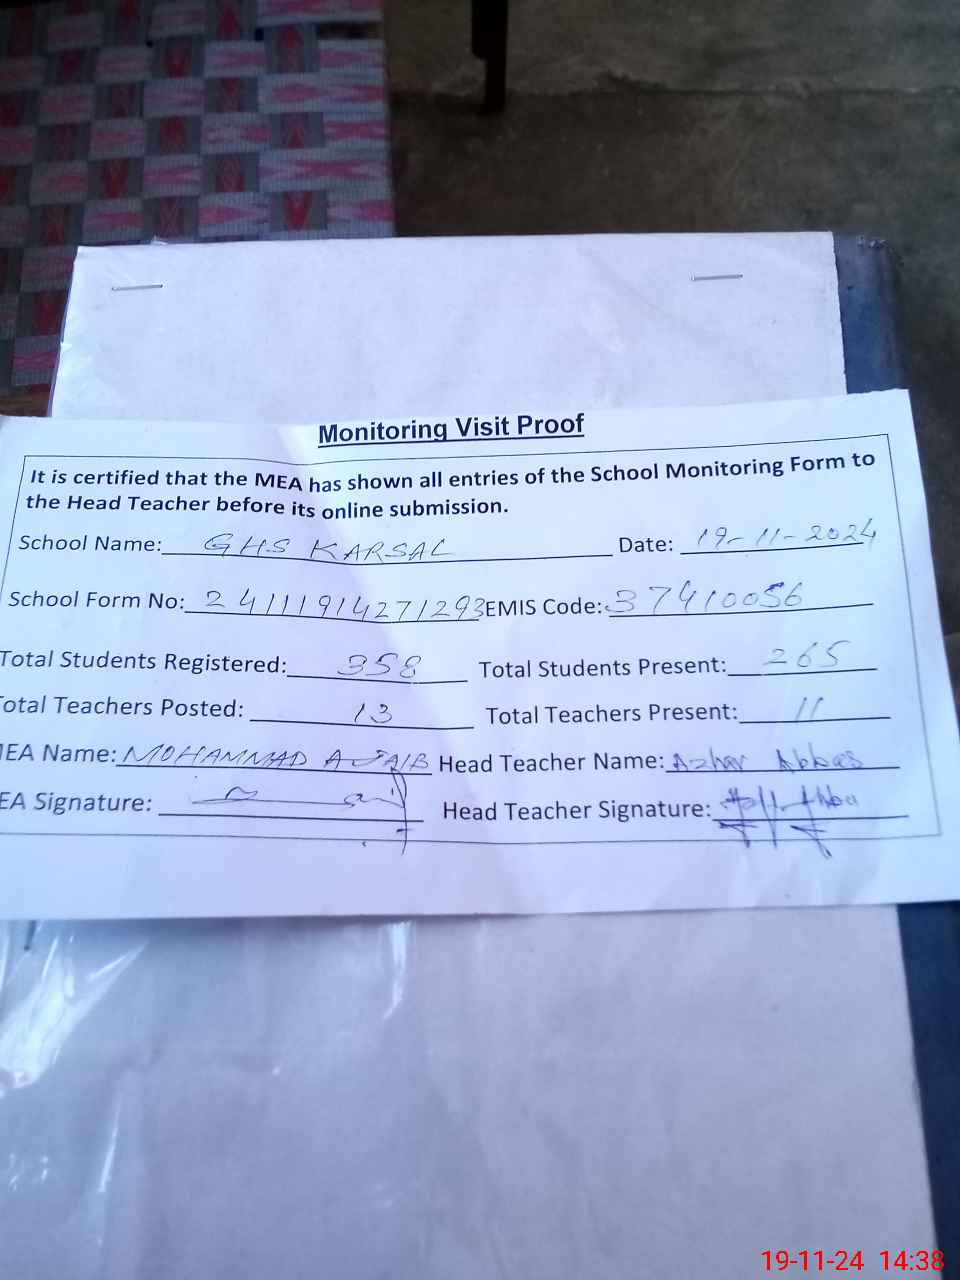 Monitoring Visit Proof
It is certified that the MEA has shown all entries of the School Monitoring Form to
the Head Teacher before its online submission.
School Name: GHS KARSAL Date: 19-11-2024
School Form No: 24111914271293 EMIS Code: 37410056
Total Students Registered: 358 Total Students Present: 265
Total Teachers Posted: 13 Total Teachers Present: 11
MEA Name: MOHAMMAD AJAIB Head Teacher Name: Azhar Abbas
EA Signature: Head Teacher Signature:
19-11-24 14:38